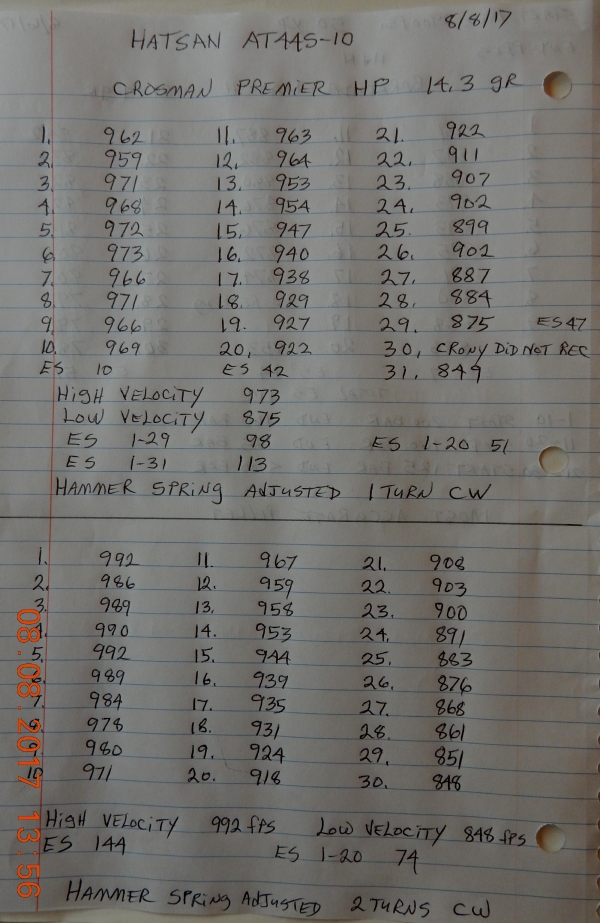 8/8/17
HATSAN AT44S-10
CROSMAN PREMIER HP 14.3 gR
1. 962 11. 963 21. 922
2. 959 12. 964 22. 911
3. 971 13. 953 23. 907
4. 968 14. 954 24. 902
5. 972 15. 947 25. 899
6. 973 16. 940 26. 902
7. 966 17. 938 27. 887
8. 971 18. 929 28. 884
9. 966 19. 927 29. 875 ES 47
10. 969 20. 922 30, CRONY DID NOT REC
ES 10 ES 42 31. 849
HIGH VELOCITY 973
LOW VELOCITY 875
ES 1-29 98 ES 1-20 51
ES 1-31 113
HAMMER SPRING ADJUSTED 1 TURN CW
1. 992 11. 967 21. 908
2. 986 12. 959 22. 903
3. 989 13. 958 23. 900
4. 990 14. 953 24. 891
5. 992 15. 944 25. 883
6. 989 16. 939 26. 876
7. 984 17. 935 27. 868
8. 978 18. 931 28. 861
9. 980 19. 924 29. 851
10 971 20. 918 30. 848
HIGH VELOCITY 992 fps LOW VELOCITY 848 fps
ES 144 ES 1-20 74
HAMMER SPRING ADJUSTED 2 TURNS CW
08.08.2017 13:56